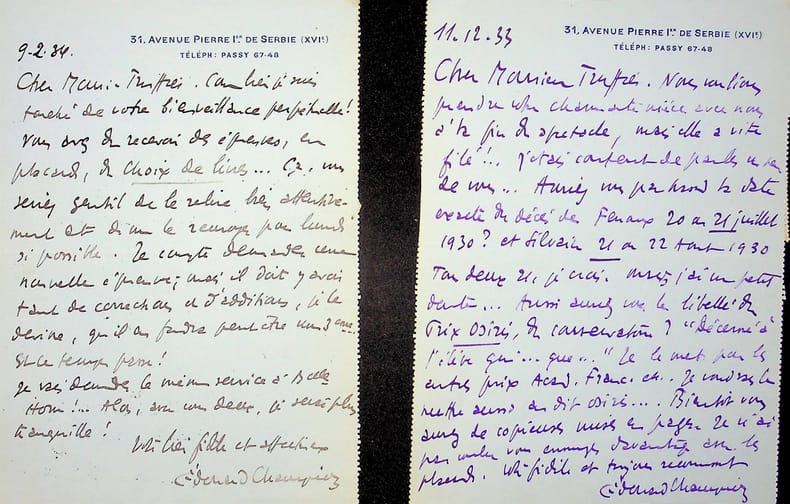 31, AVENUE PIERRE Ier DE SERBIE (XVIe)
TÉLÉPH: PASSY 67-48
9.2.34.
Cher Monsieur Truffier. Combien je suis
touché de votre bienveillance perpétuelle!
Vous avez dû recevoir des épreuves, en
placards, du Choix de livres... Ça, vous
seriez gentil de le relire très attentive-
ment et de me le renvoyer pour lundi
si possible. Je compte demander une
nouvelle épreuve, mais il doit y avoir
tant de corrections et d'additions, je le
devine, qu'il en faudra peut être une 3ème.
Et le temps passe!
Je vais demander le même service à
... Alors, avec vous deux, je serai plus
tranquille!
Votre très fidèle et affectueux
Édouard Champion
31, AVENUE PIERRE Ier DE SERBIE (XVIe)
TÉLÉPH: PASSY 67-48
11.12.33
Cher Monsieur Truffier. Nous voulions
prendre votre charmante nièce avec nous
à la fin du spectacle, mais elle a vite
filé!.. J'étais content de parler un peu
de vous... Auriez vous par hasard la date
exacte du décès de Fenoux 20 ou 21 juillet
1930? et Silvain 21 ou 22 Aout 1930
Tous deux 21, je crois. Mais j'ai un petit
doute... Aussi auriez vous le libellé du
Prix Osiris, du conservatoire? "Décerné à
l'élève qui... que..." Je le mets pour les
autres prix Acad. Franc. etc. Je voudrais le
mettre aussi au dit Osiris... Bientôt vous
aurez de copieuses mises en pages. Je n'ai
pas voulu vous ennuyer davantage avec les
placards. Votre fidèle et toujours reconnaissant
Édouard Champion